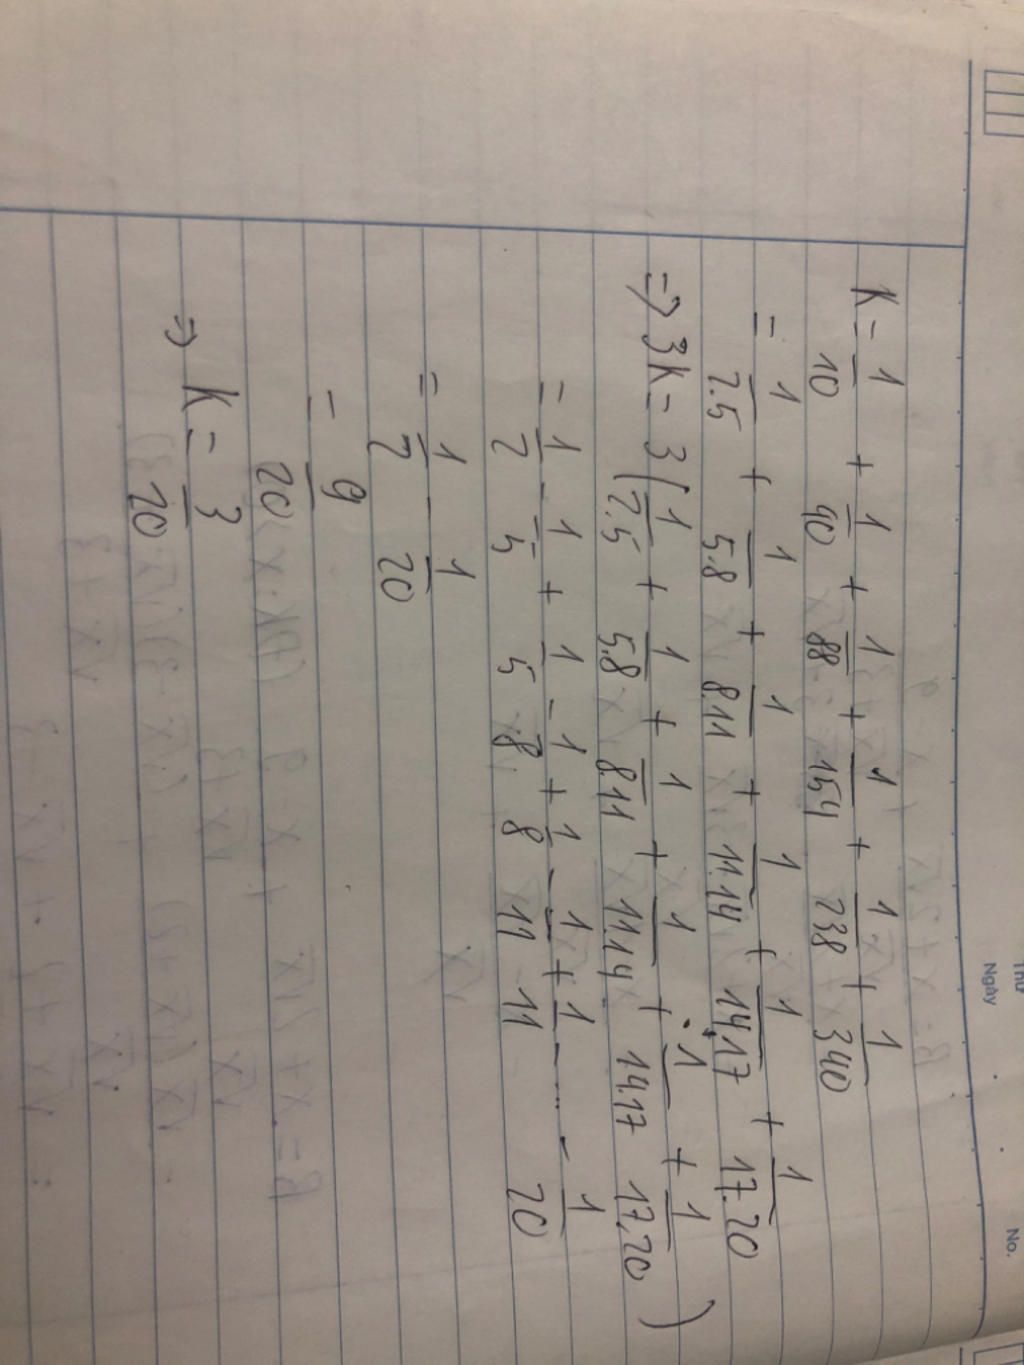 Thứ
Ngày
No.
K = 1/10 + 1/40 + 1/88 + 1/154 + 1/238 + 1/340
= 1/2.5 + 1/5.8 + 1/8.11 + 1/11.14 + 1/14.17 + 1/17.20
=> 3K = 3(1/2.5 + 1/5.8 + 1/8.11 + 1/11.14 + 1/14.17 + 1/17.20)
= 1/2 - 1/5 + 1/5 - 1/8 + 1/8 - 1/11 + 1/11 - .... - 1/20
= 1/2 - 1/20
= 9/20
=> K = 3/20